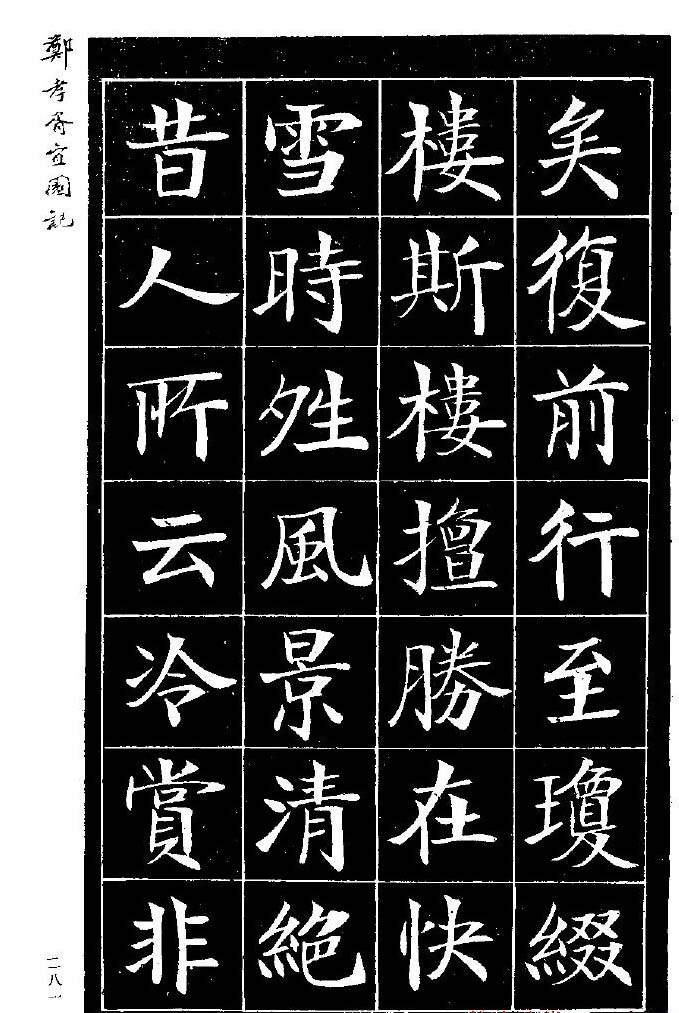 矣復前行至瓊綴
樓斯樓擅勝在快
雪時姓風景清絶
昔人所云冷賞非
鄭孝胥宜園記
二八一